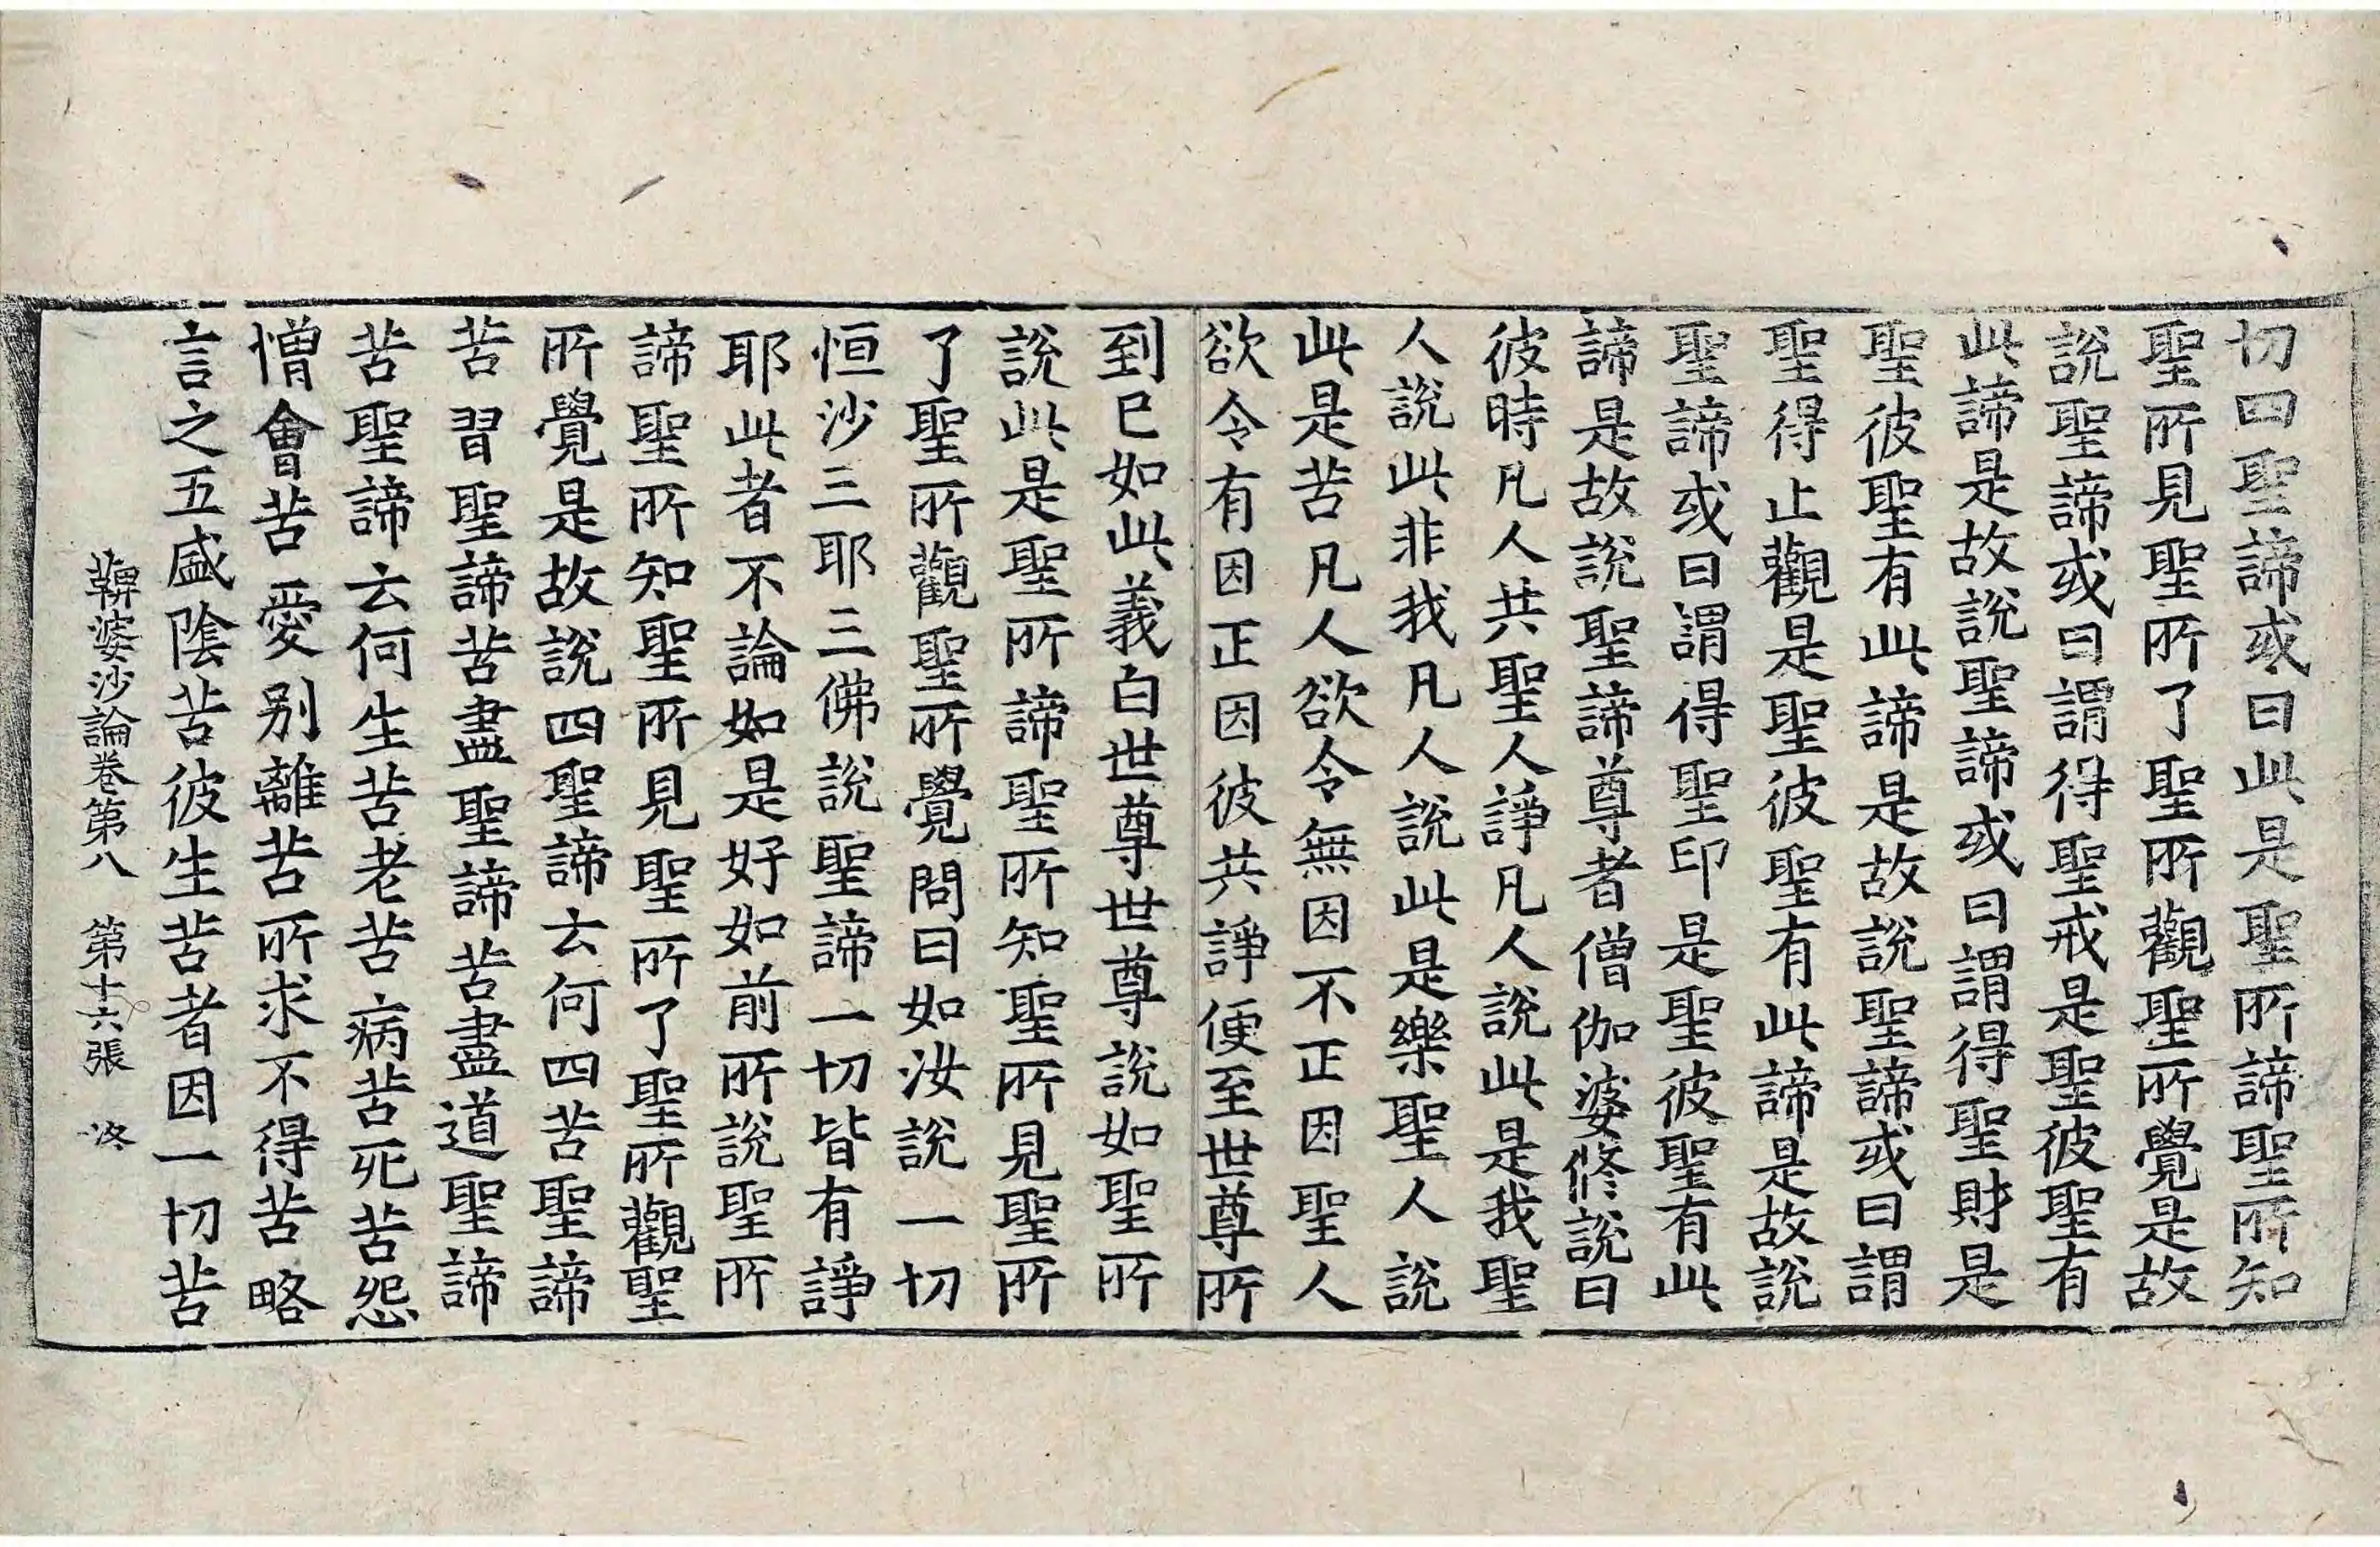 切四聖諦或曰此是聖所諦聖所知
聖所見聖所了聖所觀聖所覺是故
說聖諦或曰謂得聖戒是聖彼聖有
此諦是故說聖諦或曰謂得聖財是
聖彼聖有此諦是故說聖諦或曰謂
聖得止觀是聖彼聖有此諦是故說
聖諦或曰謂得聖印是聖彼聖有此
諦是故說聖諦尊者僧伽婆修說曰
彼時凡人共聖人諍凡人說此是我聖
人說此非我凡人說此是樂聖人說
此是苦凡人欲令無因不正因聖人
欲令有因正因彼共諍便至世尊所
到已如此義白世尊世尊說如聖所
說此是聖所諦聖所知聖所見聖所
了聖所觀聖所覺問曰如汝說一切
恒沙三耶三佛說聖諦一切皆有諍
耶此者不論如是好如前所說聖所
諦聖所知聖所見聖所了聖所觀聖
所覺是故說四聖諦云何四苦聖諦
苦習聖諦苦盡聖諦苦盡道聖諦
苦聖諦云何生苦老苦病苦死苦怨
憎會苦愛別離苦所求不得苦略
言之五盛陰苦彼生苦者因一切苦
鞞婆沙論卷第八 第十六張 洛